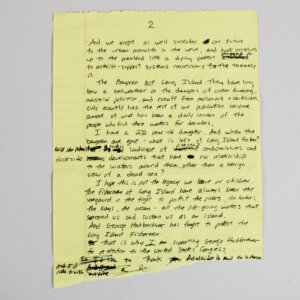 2
And we might as well surrender our future
to the urban monolith to the west, and hook ourselves
up to the mainland like a dying patient
to artificial-support systems necessary for the terminally
ill.
The Baymen are Long Island. They have long
been a bellwether on the dangers of ocean dumping,
industrial pollution and runoff from poisonous pesticides.
Only recently has the rest of our population become
aware of what has been a daily concern of the
people who fish these waters for decades.
I have a 2½ year-old daughter. And when the
baymen are gone - what is left of Long Island for her?
landscape of condominiums and
dockside developments that have no relationship
to the waters around them other than a benign
view of a dead sea?
I hope this is not the legacy we leave our children.
The fishermen of Long Island have always been the
vanguard in the fight to protect the rivers, the inlets,
the bays, the ocean - all the life-giving waters that
surround us and sustain us as an island.
And George Hochbrueckner has fought to protect the
Long Island Fishermen.
that is why I am supporting George Hochbrueckner
for re-election to the United States Congress.
to Thank you